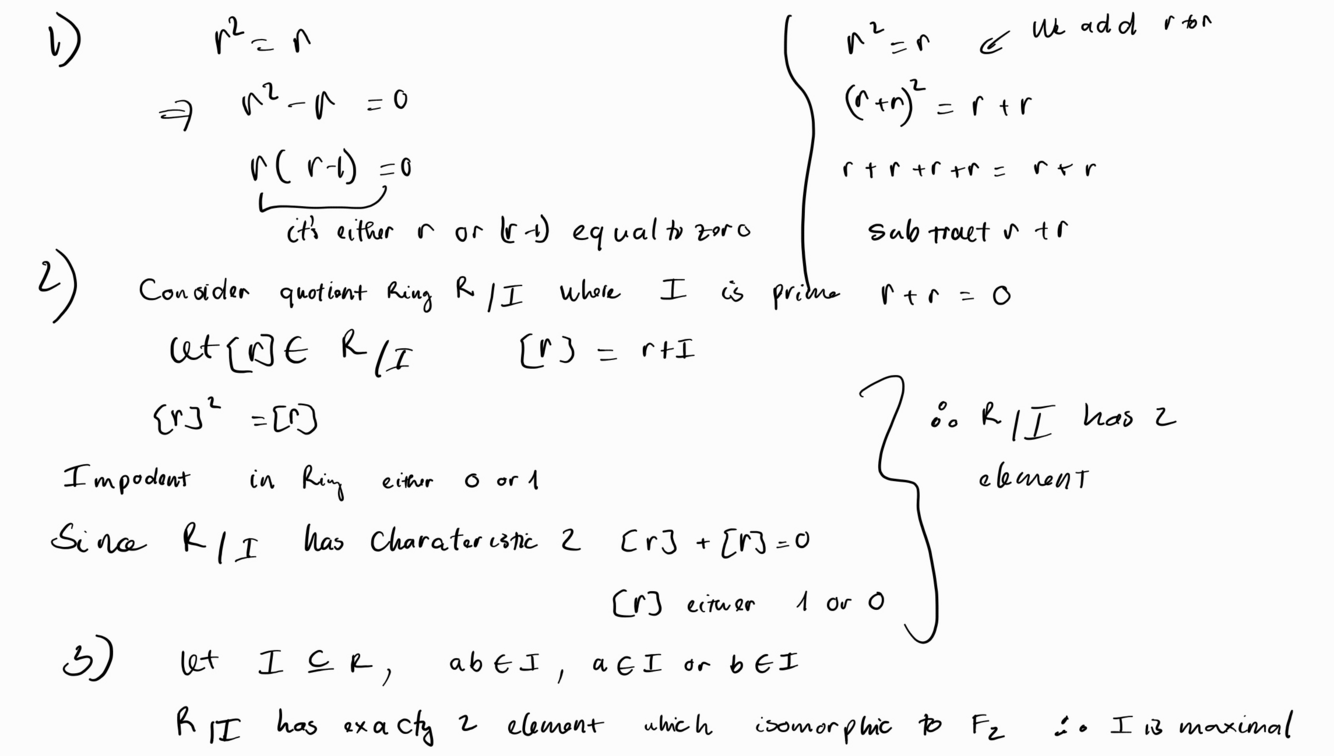 1) r² = r
⇒ r² - r = 0
r( r-1) = 0
it's either r or (r-1) equal to zero
r² = r ↙ We add r to r
(r+r)² = r + r
r + r + r + r = r + r
subtract r + r
r + r = 0
2) Consider quotient Ring R/I where I is prime
let [r] ∈ R/I [r] = r+I
[r]² = [r]
Impodent in Ring either 0 or 1
Since R/I has charateristic 2 [r] + [r] = 0
[r] either 1 or 0
∴ R/I has 2
element
3) let I ⊆ R, ab ∈ I, a ∈ I or b ∈ I
R/I has exacty 2 element which isomorphic to F₂ ∴ I is maximal